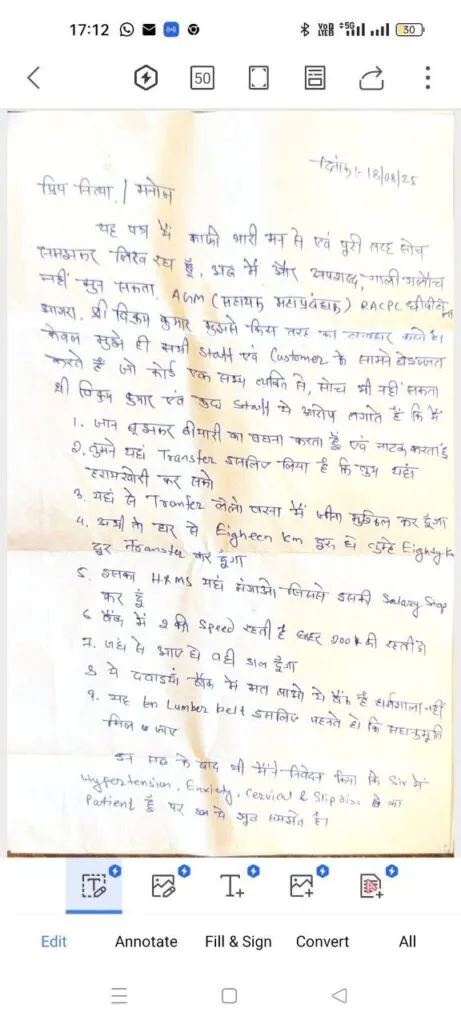 17:12
VoD LTE 5G 30
50
दिनांक:-18/08/25
प्रिय नित्या / मनोज
यह पत्र मैं काफी भारी मन से एवं पूरी तरह सोच
समझकर लिख रहा हूँ, अब मैं और अपशब्द, गाली गलौच
नहीं सुन सकता. AGM (सहायक महाप्रबंधक) RACPC
आगरा, श्री विक्रम कुमार मुझसे किस तरह का व्यवहार करते है।
केवल मुझे ही सभी Staff एवं Customer के सामने बेइज्जत
करते हैं जो कोई एक सभ्य व्यक्ति से, सोच भी नहीं सकता
श्री विक्रम कुमार एवं कुछ Staff ये आरोप लगाते हैं कि मैं
1. जान बूझकर बीमारी का बहाना करता हूँ एवं नाटक करता हूं
2. तुमने यहां Transfer इसलिए लिया है कि तुम यहां
हरामखोरी कर सको
3. यहां से Tranfer लेलो वरना मैं जीना मुश्किल कर दूंगा
4. अभी तो घर से Eigheen Km दूर हो तुम्हे Eighty Km
दूर Transfer कर दूंगा
5. इसका HRMS यहां मंगाओ जिससे इसकी Salary Stop
कर दूँ
6 बैंक में 2 की Speed रहती है बाहर 200 की रहती है
7. जहां से आए हो वही डाल दूँगा
8 ये दवाइयां बैंक में मत लाओ ये बैंक है धर्मशाला नहीं
9. यह Lumber belt इसलिए पहनते हो कि सहानुभूति
मिल जाए
इन सब के बाद भी मैंने निवेदन किया कि Sir मैं
Hypertension, Enxiety, Cervical & Slip disc का
Patient हूँ पर ये झूठ समझते है।
Edit
Annotate
Fill & Sign
Convert
All